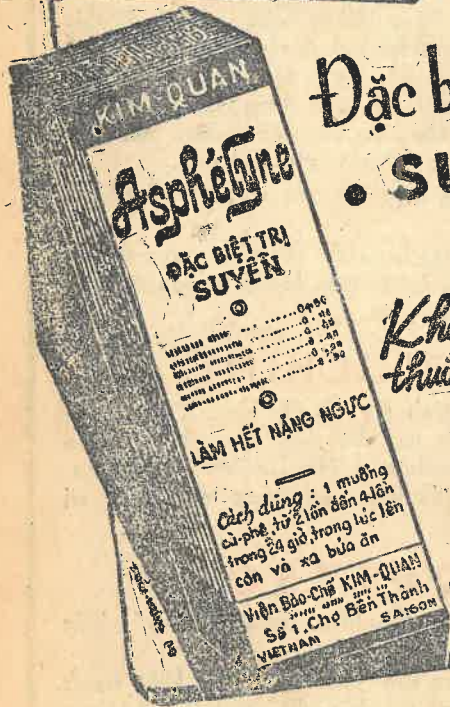 KIM-QUAN
Asphétyne
ĐẶC BIỆT TRỊ
SUYỄN
LÀM HẾT NẶNG NGỰC
Cách dùng : 1 muỗng
cà-phê, từ 2 lần đến 4 lần
trong 24 giờ, trong lúc lên
cơn và xa bữa ăn
Viện Bào-Chế KIM-QUAN
Số 1, Chợ Bến Thành
VIETNAM SAIGON
Đặc b
. SU
Kh
thu